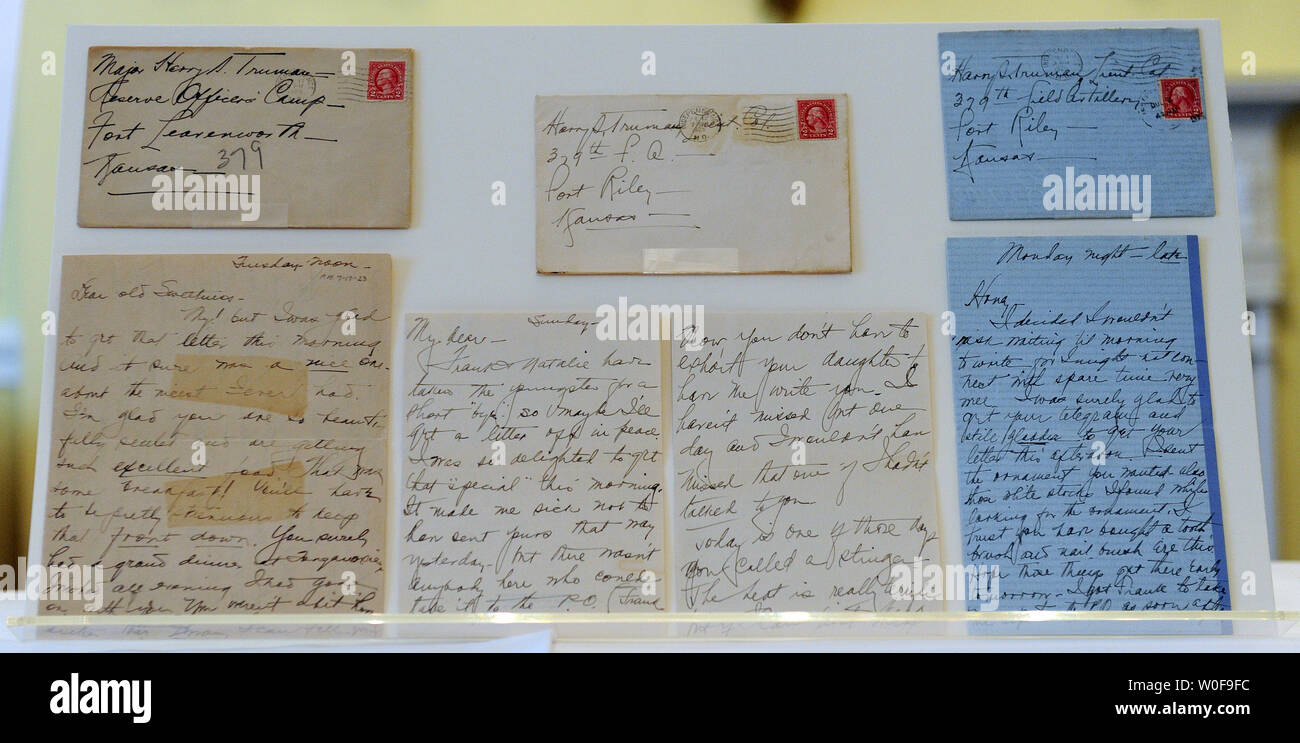 Major Harry S. Truman
Reserve Officers' Camp
Fort Leavenworth
Kansas
379
Harry S. Truman
379th F. A.
Fort Riley
Kansas
Harry S. Truman Lieut Col
379th Field Artillery
Fort Riley
Kansas
Tuesday Noon
Dear old Sweetness
My! but I was glad
to get that letter this morning
and it sure was a nice one
about the nicest I ever had.
I'm glad you are so beauti-
fully seated and are getting
such excellent food! that was
some breakfast! You'll have
to be pretty to keep
that front down. You surely
had a grand dinner
Sunday
My dear
Frank & Natalie have
taken the youngster for a
short bye. So maybe I'll
get a letter off in peace.
I was so delighted to get
that "special" this morning.
It made me sick not to
have sent yours that way
yesterday but there wasn't
anybody here who could
take it to the P.O. (Frank
Now you don't have to
exhort your daughter to
have me write you. I
haven't missed but one
day and I wouldn't have
missed that one if I hadn't
talked to you.
Today is one of those days
you called a stinger
The heat is really
Monday night late
Hony
I decided I wouldn't
risk waiting til morning
to write for I might not con-
nect with spare time very
well. I was surely glad to
get your telegram and
still gladder to get your
letter this afternoon. I sent
the ornament you wanted also
those white stocks I found while
looking for the ordament. I
trust you have bought a tooth
brush and nail brush are this
hope those things get there early
tomorrow. I got Frank to take
to P.O. as soon as
alamy
alamy
Image ID: W0F9FC
www.alamy.com